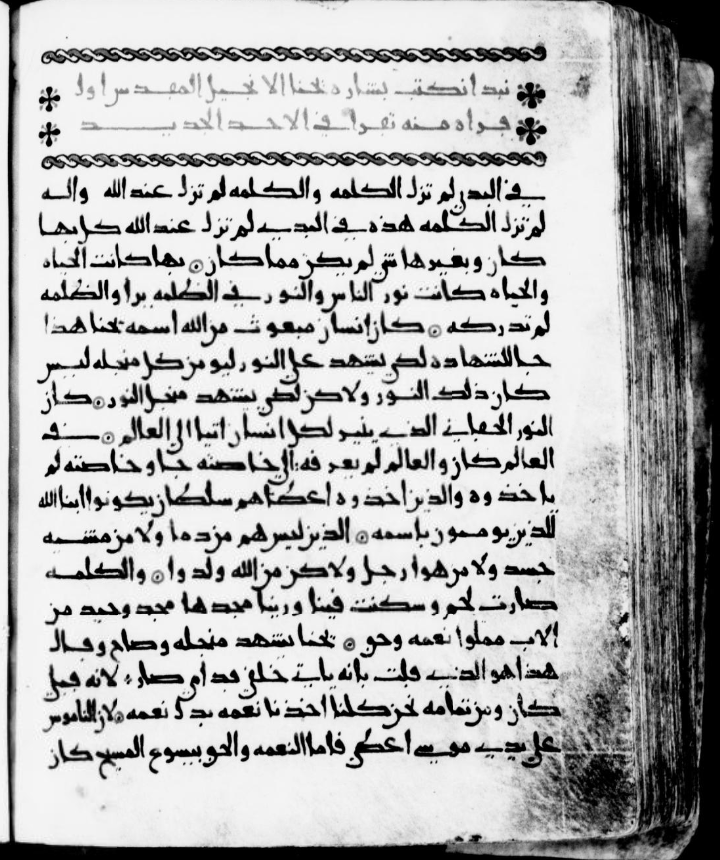 نبدا نكتب بشاره يحنا الانجيل المقدس اول
قراه منه تقرا في الاحد الجديد
في البدي لم تزل الكلمه والكلمه لم تزل عند الله واله
لم تزل الكلمه هذه في البدي لم تزل عند الله كل بها
كان وبغيرها شي لم يكن مما كان بها كانت الحياه
والحياه كانت نور الناس والنور في الظلمه يرا والظلمه
لم تدركه كان انسان مبعوث من الله اسمه يحنا هذا
جا للشهاده لكي يشهد على النور ليومن كل منجله ليس
كان ذلك النور ولاكن لكي يشهد منجل النور كان
النور الحقاني الذي ينير لكل انسان اتيا الى العالم في
العالم كان والعالم لم يعرفه الى خاصته جا وخاصته لم
ياخذوه والذين اخذوه اعطاهم سلطان يكونوا ابنا الله
للذين يومنون باسمه الذين ليس هم من دما ولا من مشيه
جسد ولا من هوا رجل ولاكن من الله ولدوا والكلمه
صارت لحم وسكنت فينا ورينا مجدها مجد وحيد من
الاب مملوا نعمه وحق يحنا يشهد منجله وصاح وقال
هذا هو الذي قلت بانه ياتي خلفي قدامي صار لانه قبلي
كان ومن تمامه نحن كلنا اخذنا نعمه بدل نعمه لان الناموس
على يدي موسى اعطي فاما النعمه والحق بيسوع المسيح كان